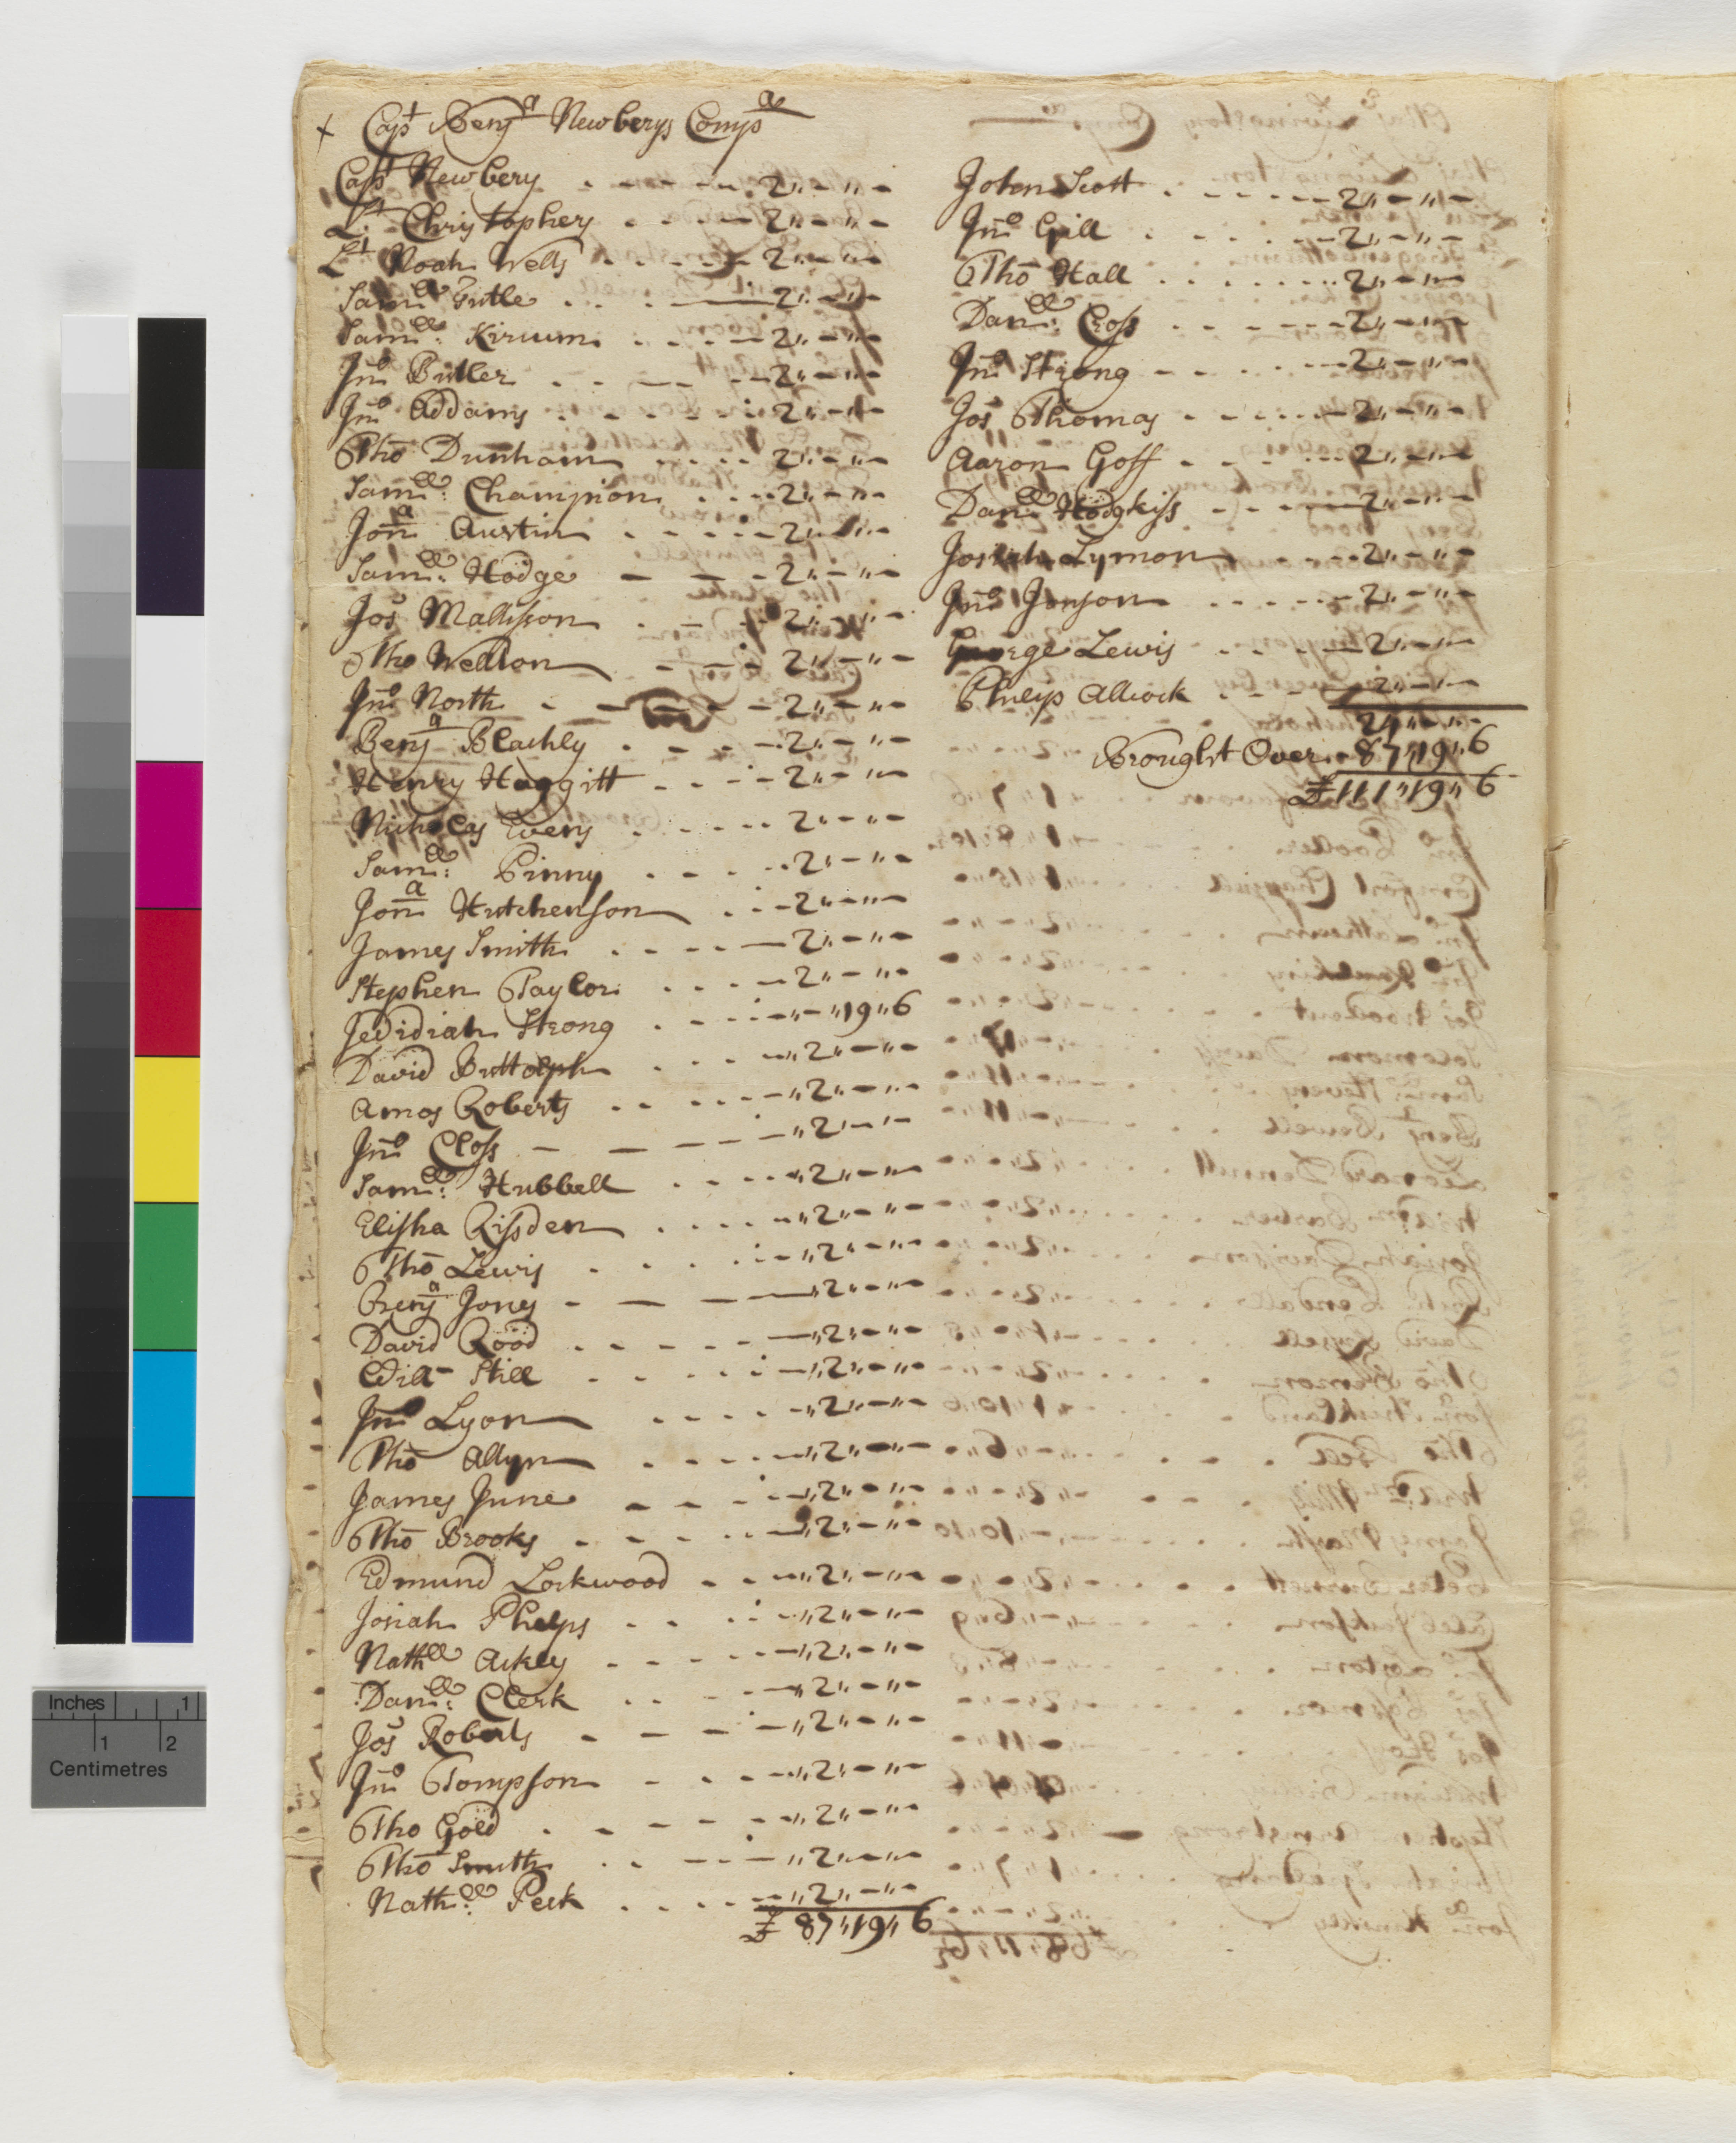 + Capt Benja Newberys Compa
Capt Newbery . - - - - 2 " - " -
Lt Christophers . - - - 2 " - " -
Lt Noah Wells . - - - 2 " - " -
Samll Tutle . . . - 2 " - " -
Samll: Kircum . . . - 2 " - " -
Jno Butler . - - - 2 " - " -
Jno Addams . - - - 2 " - " -
Tho Dunham . . . . 2 " - " -
Samll: Champion . . . . 2 " - " -
Jona Austin . - - - 2 " - " -
Samll: Hodge - - - 2 " - " -
Jos Mallisson . - - 2 " - " -
Tho Wellton - - - 2 " - " -
Jno North - - - - 2 " - " -
Benja Blachly . - - - 2 " - " -
Henry Haggitt - - - - 2 " - " -
Nicholas Evens . . - - 2 " - " -
Samll: Pinny . - - - 2 " - " -
Jona Hutchenson . - - 2 " - " -
James Smith . - - - 2 " - " -
Stephen Taylor . . - - 2 " - " -
Jedidiah Strong . - - - " - " 19 " 6
David Buttolph . . . - " 2 " - " -
Amos Roberts . . - - " 2 " - " -
Jno Closs - - - - " 2 " - " -
Samll: Hubbell . . . - " 2 " - " -
Elisha Rissden . . . . - " 2 " - " -
Tho Lewis . . . - " 2 " - " -
Benja Jones - - - " 2 " - " -
David Rood . - - - " 2 " - " -
Will Still . . . - " 2 " - " -
Jno Lyon . . . . - " 2 " - " -
Tho Allyn . . . - " 2 " - " -
James June - - - " 2 " - " -
Tho Brooks . - - - " 2 " - " -
Edmund Lockwood - - - " 2 " - " -
Josiah Phelps - - - " 2 " - " -
Nathll Ackley - - - - " 2 " - " -
Danll: Clerk . . - - " 2 " - " -
Jos Roberts - - - - " 2 " - " -
Jno Tompson - - - - " 2 " - " -
Tho Gold . - - - " 2 " - " -
Tho Smith . . - - " 2 " - " -
Nathll: Peck . . . - " 2 " - " -
£ 87 " 19 " 6
John Scott . - - - 2 " - " -
Jno Gill . . . - 2 " - " -
Tho Hall . . . . 2 " - " -
Danll: Cross . - - - 2 " - " -
Jno Strong - - - - 2 " - " -
Jos Thomas - - - - 2 " - " -
Aaron Goff - - - - 2 " - " -
Danll Hodgkiss - - - 2 " - " -
Josiah Lymon - - - 2 " - " -
Jno Jonson . . . - 2 " - " -
George Lewis . . - - 2 " - " -
Philip Allcock . - - 2 " - " -
24 " - " -
Brought Over - 87 " 19 " 6
£ 111 " 19 " 6
Inches 1
1 2
Centimetres